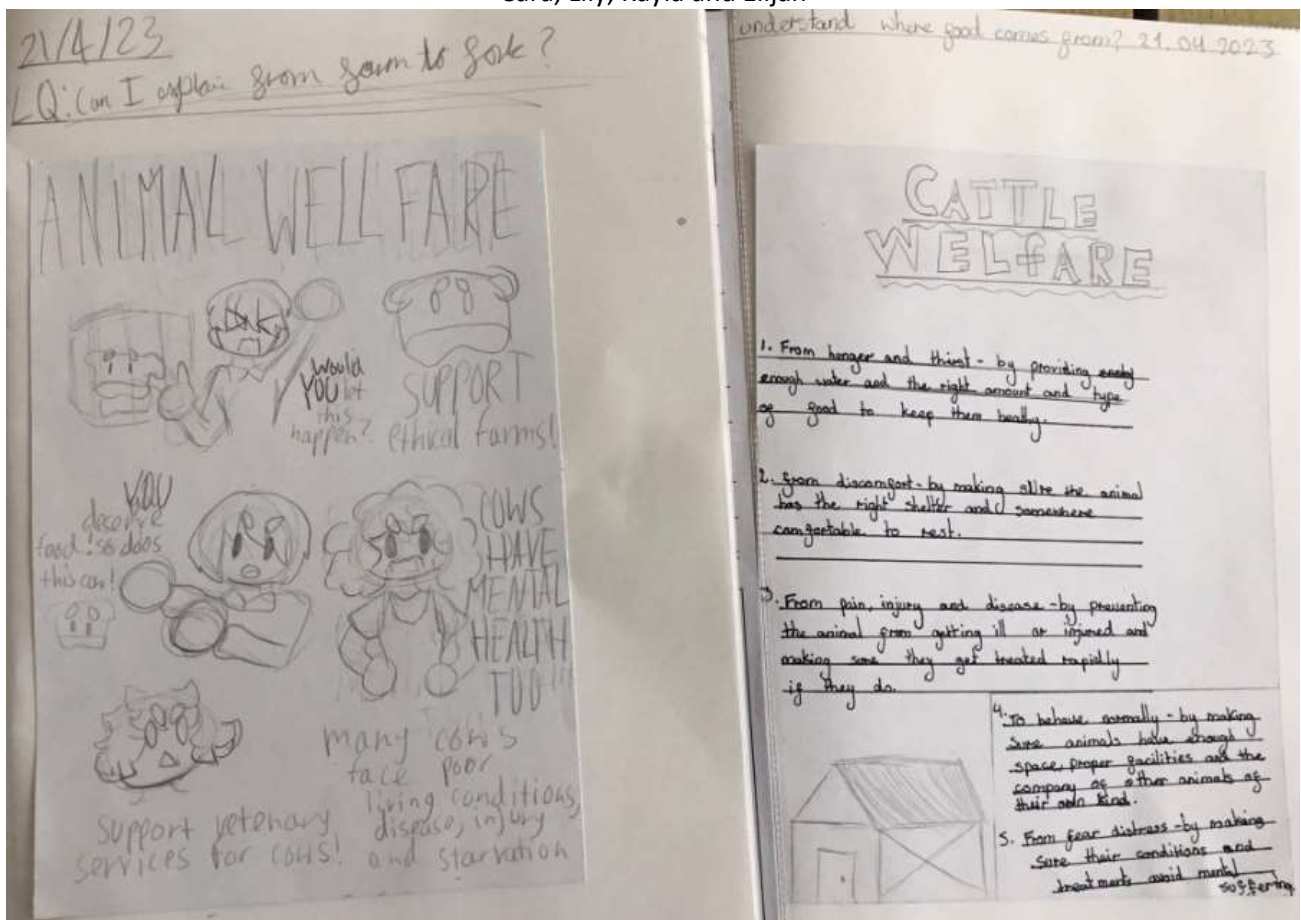 21/4/23
LQ: Can I explain from farm to fork?
ANIMAL WELLFARE
Would
YOU let
this
happen?
SUPPORT
ethical farms!
YOU
deserve
food! so does
this cow!
COWS
HAVE
MENTAL
HEALTH
TOO
many cows
face poor
living conditions,
disease, injury
and starvation
support vetenary
services for cows!
understand where food comes from? 21.04.2023
CATTLE
WELFARE
1. From hunger and thirst - by providing
enough water and the right amount and type
of food to keep them healthy.
2. From discomfort - by making sure the animal
has the right shelter and somewhere
comfortable to rest.
3. From pain, injury and disease - by preventing
the animal from getting ill or injured and
making sure they get treated rapidly
if they do.
4. To behave normally - by making
sure animals have enough
space, proper facilities and the
company of other animals of
their own kind.
5. From fear distress - by making
sure their conditions and
treatments avoid mental
suffering.